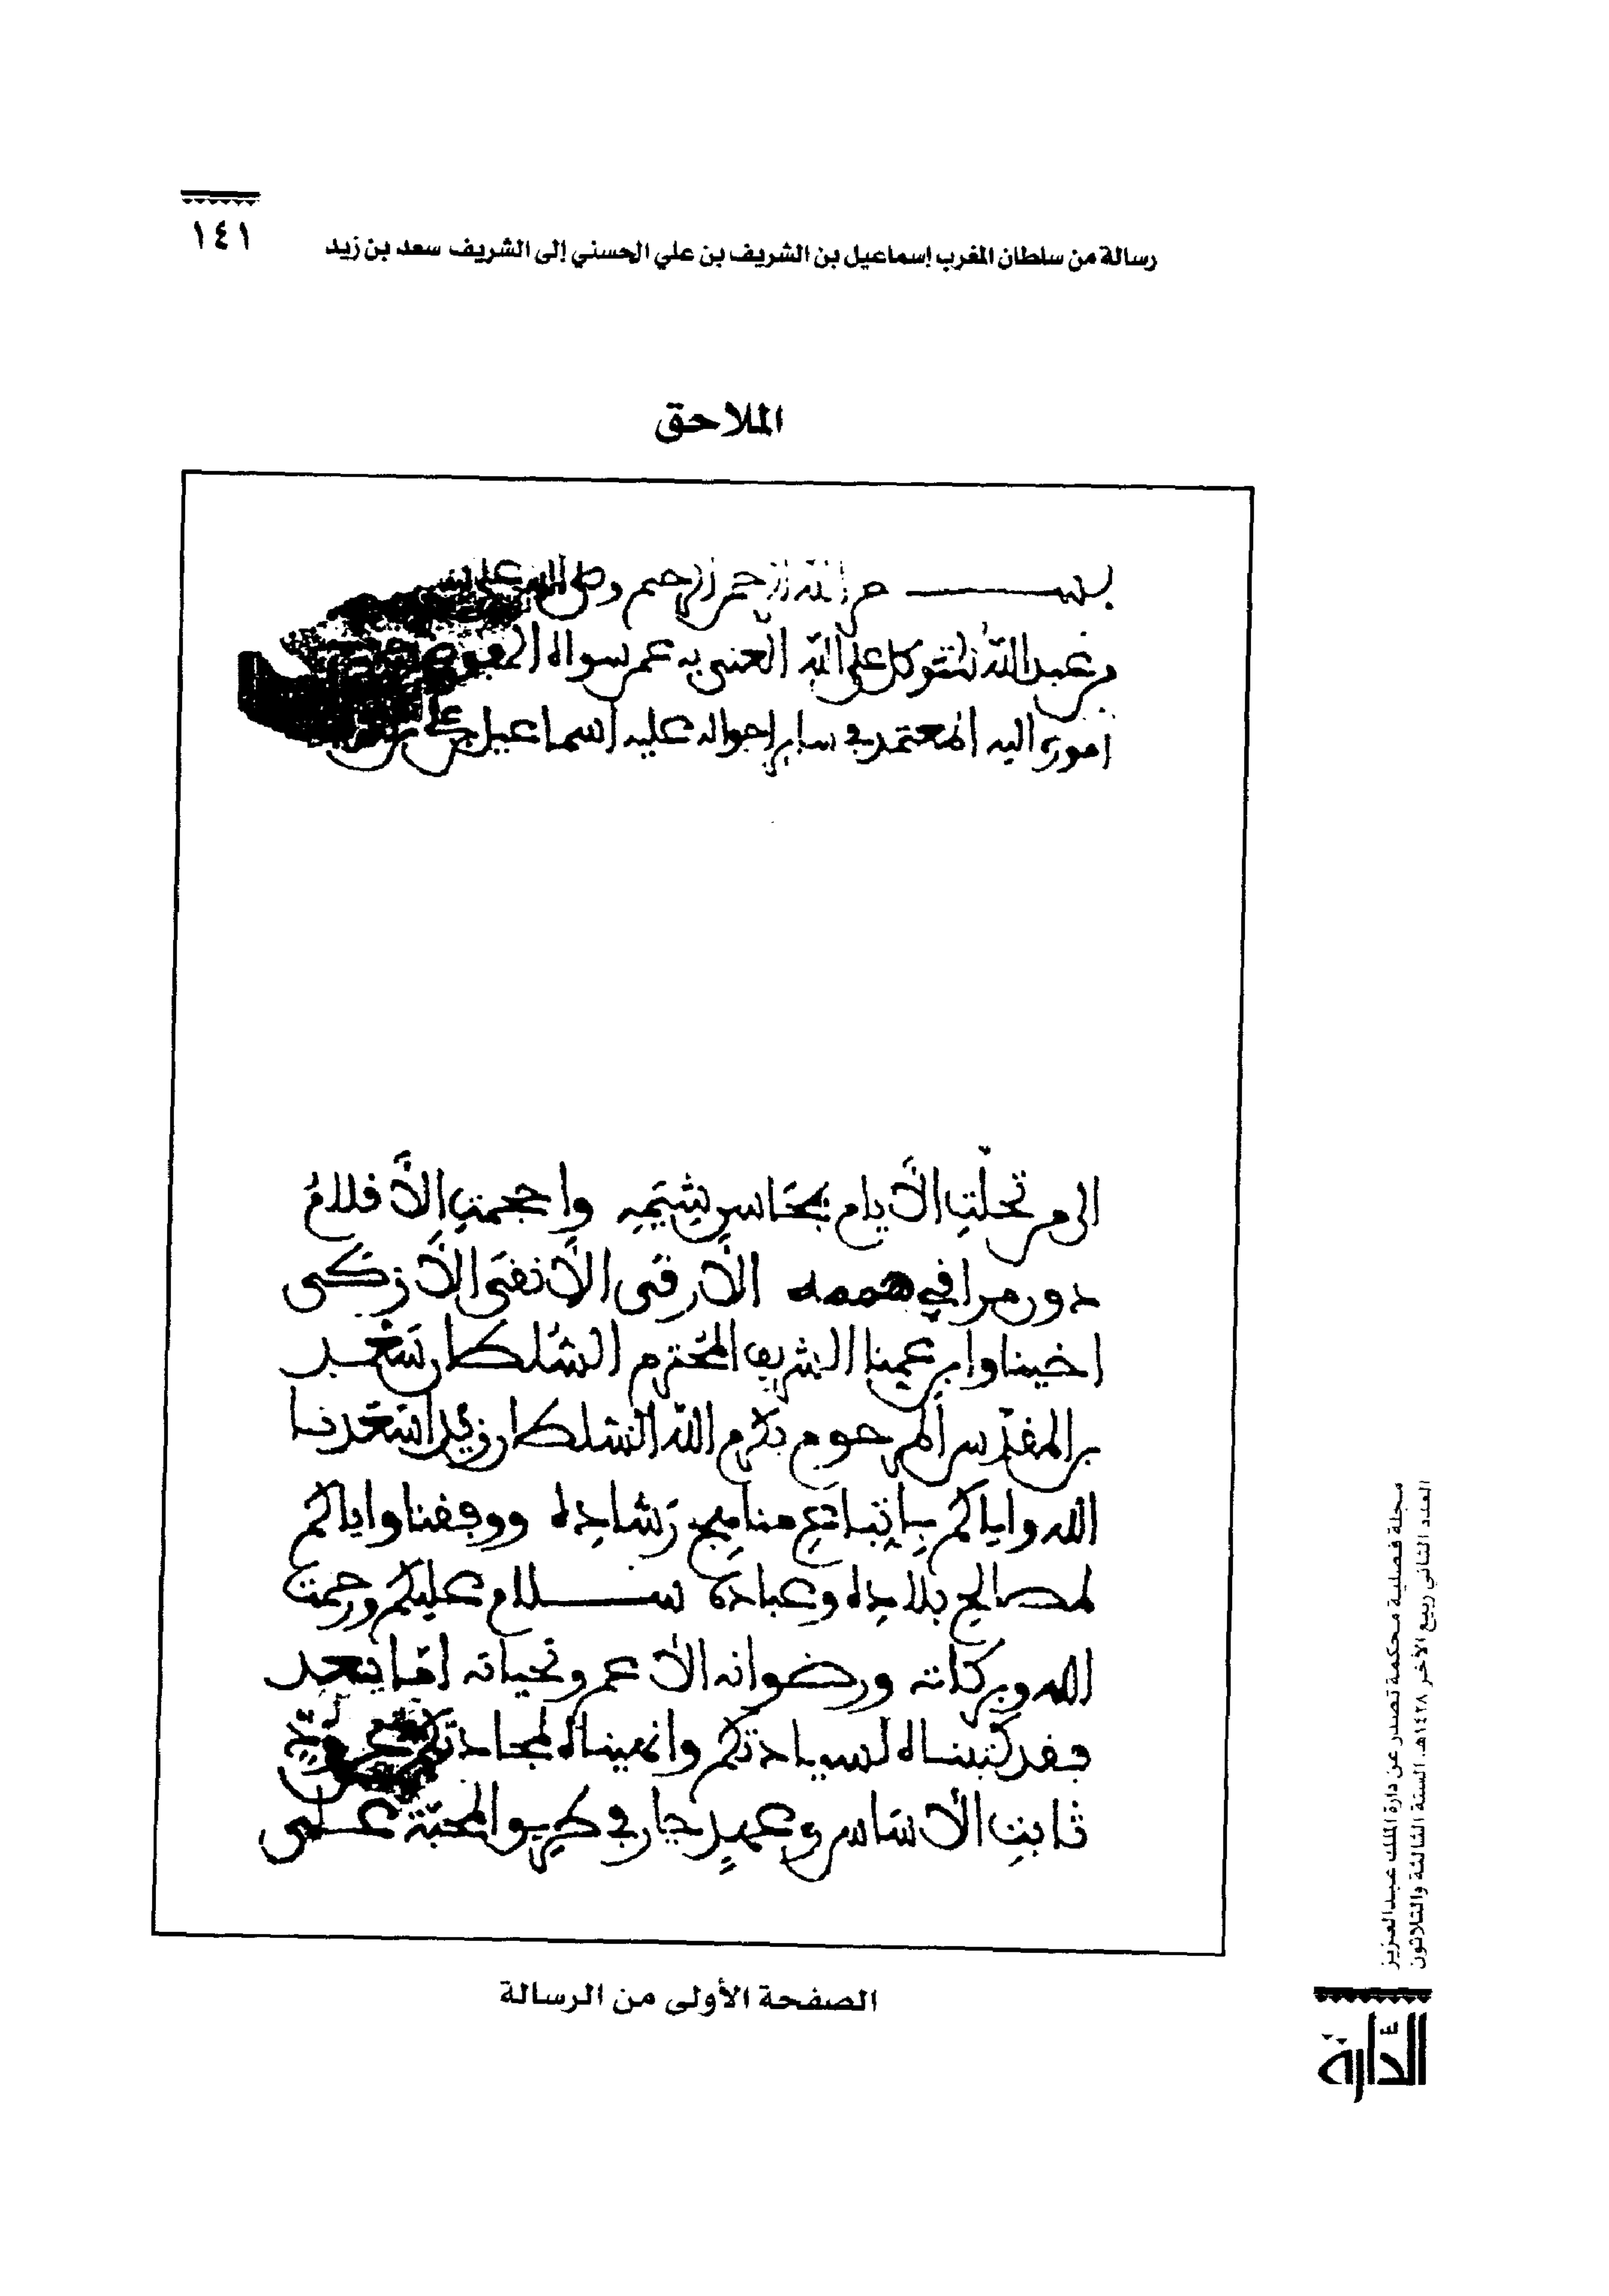 ١٤١
رسالة من سلطان المغرب إسماعيل بن الشريف بن علي الحسني إلى الشريف سعد بن زيد
الملاحق
بسم الله الرحمن الرحيم وصلى الله على
من عبد الله المتوكل على الله الغني به عمن سواه المفوض
اموره اليه المعتمد في ساير احواله عليه اسماعيل بن
الى من تحلّت الأيام بمحاسن شيمه واحجمت الأقلام
دون مرافي هممه الأرقى الأنقى الأزكى
اخينا وابن عمنا الشريف المحترم السلطان سعد
بن المقدس المرحوم بكرم الله السلطان زيد اسعدنا
الله واياكم باتباع مناهج رشاده ووفقنا واياكم
لمصالح بلاده وعباده سلام عليكم ورحمت
الله وبركاته ورضوانه الأعم وتحياته امّا بعد
فقد كتبناه لسيادتكم وانهيناه لمجادتكم عن ودّ
ثابت الأساس وعهد جار في طريق المحبّة على
الصفحة الأولى من الرسالة
مجلة فصلية محكمة تصدر عن دارة الملك عبدالعزيز
العدد الثاني ربيع الآخر ١٤٢٨هـ، السنة الثالثة والثلاثون
الدارة